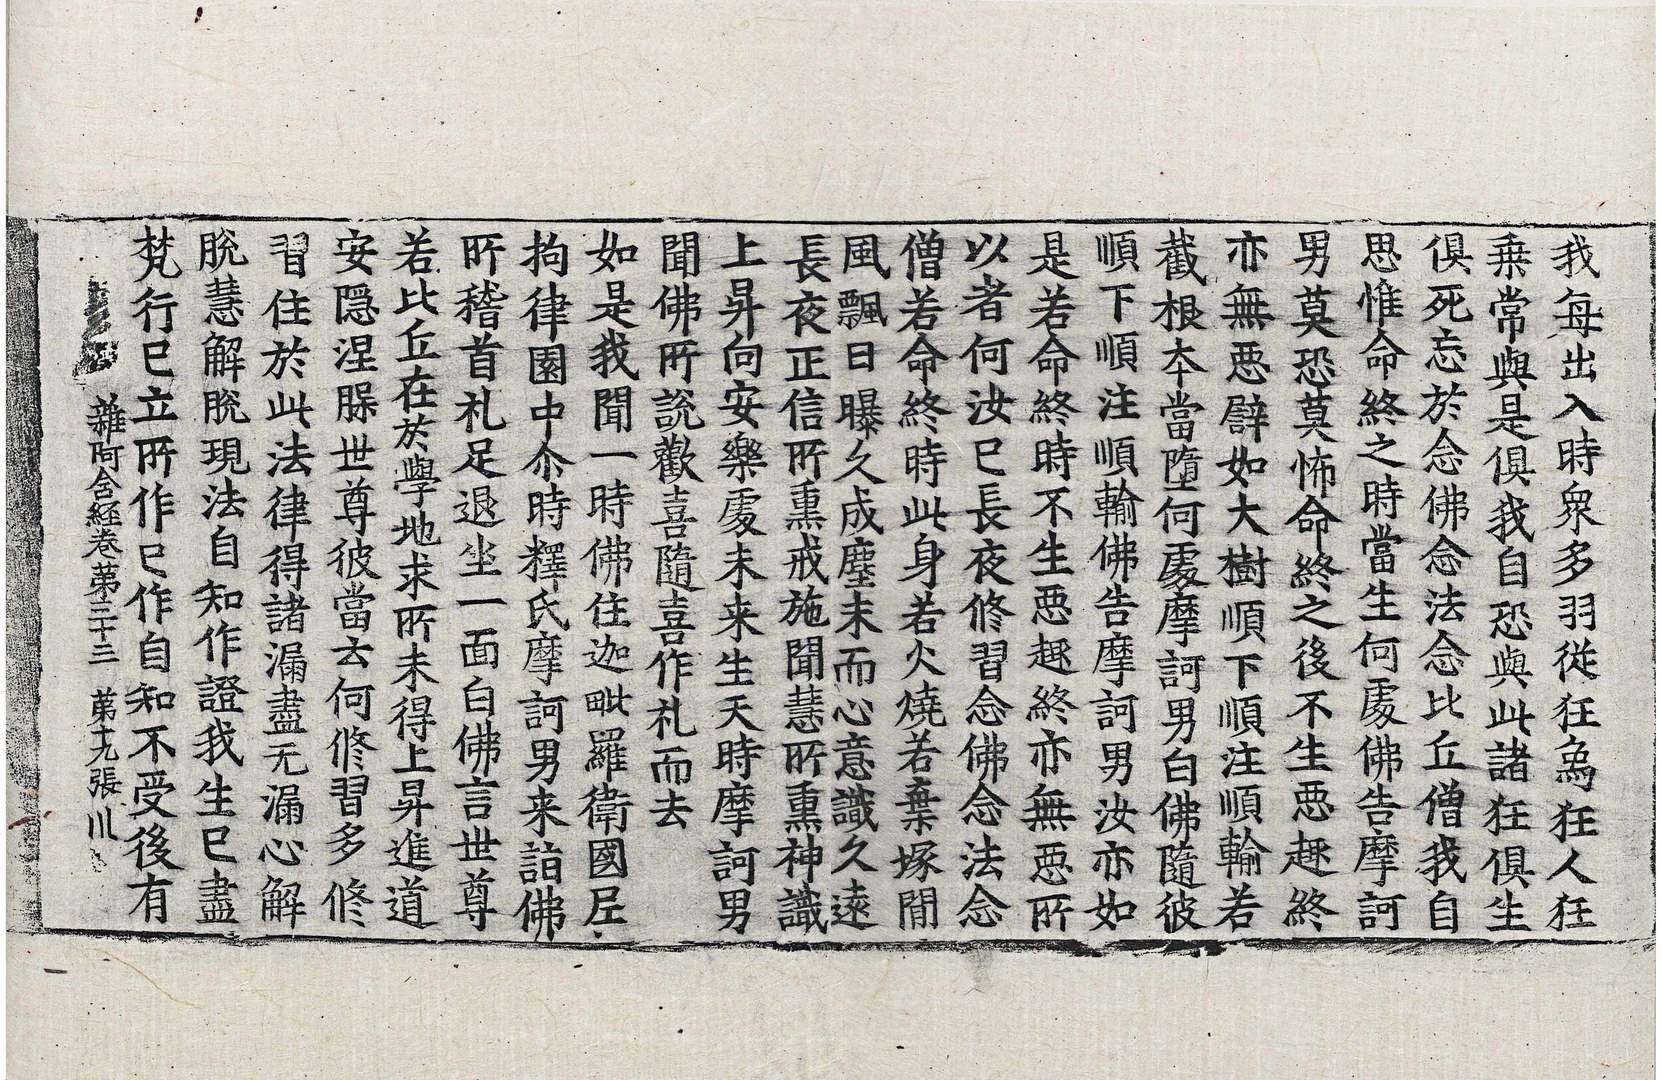 我每出入時衆多羽從狂烏狂人狂
乗常與是俱我自恐與此諸狂俱生
俱死忘於念佛念法念比丘僧我自
思惟命終之時當生何處佛告摩訶
男莫恐莫怖命終之後不生惡趣終
亦無惡譬如大樹順下順注順輸若
截根夲當墮何處摩訶男白佛隨彼
順下順注順輸佛告摩訶男汝亦如
是若命終時不生惡趣終亦無惡所
以者何汝已長夜修習念佛念法念
僧若命終時此身若火燒若棄塚間
風飄日曝久成塵末而心意識久遠
長夜正信所熏戒施聞慧所熏神識
上昇向安樂處未来生天時摩訶男
聞佛所說歡喜隨喜作礼而去
如是我聞一時佛住迦毗羅衛國尼
拘律園中尒時釋氏摩訶男来詣佛
所稽首礼足退坐一面白佛言世尊
若比丘在於學地求所未得上昇進道
安隱涅槃世尊彼當云何修習多修
習住於此法律得諸漏盡无漏心解
脫慧解脫現法自知作證我生已盡
梵行已立所作已作自知不受後有
雜阿含經卷第三十三 第十九張 川